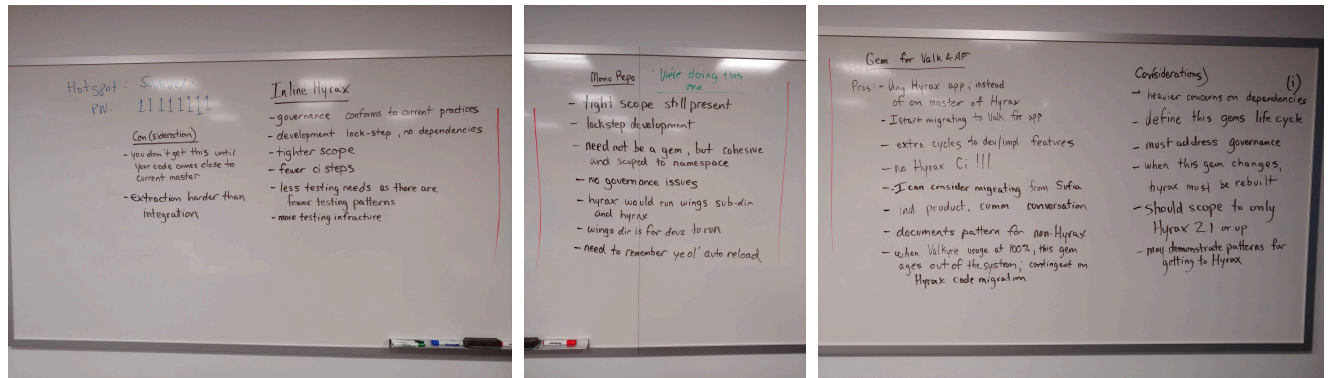 Hotspot:
PW: 11111111
Con(sideration)
- you don't get this until
your code comes close to
current master
- Extraction harder than
integration
Inline Hyrax
- governance conforms to current practices
- development lock-step, no dependencies
- tighter scope
- fewer ci steps
- less testing needs as there are
fewer testing patterns
- more testing infracture
Mono Repo
We're doing this
one
- tight scope still present
- lockstep development
- need not be a gem, but cohesive
and scoped to namespace
- no governance issues
- hyrax would run wings sub-dir
and hyrax
- wings dir is for devs to run
- need to remember ye ol' auto reload
Gem for Valk & AF
Pros: - Any Hyrax app; instead
of on master of Hyrax
- I start migrating to Valk for app
- extra cycles to dev/impl features
- no Hyrax Ci !!!
- I can consider migrating from Sufia
- ind. product, comm conversation
- documents pattern for non-Hyrax
- when Valkyrie usage at 100%, this gem
ages out of the system; contingent on
Hyrax code migration
Considerations)
(i)
- heavier concerns on dependencies
- define this gems life cycle
- must address governance
- when this gem changes,
hyrax must be rebuilt
- Should scope to only
Hyrax 2.1 or up
- may demonstrate patterns for
getting to Hyrax